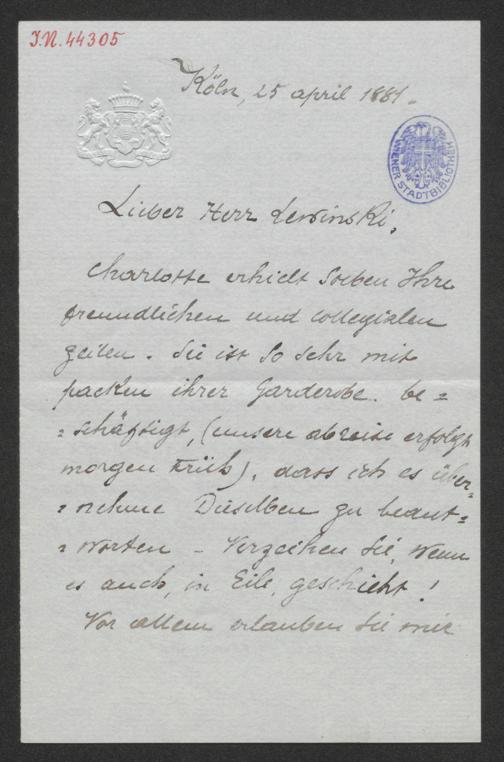 I.N. 44305
Köln, 25 april 1881.
WIENER STADTBIBLIOTHEK
Lieber Herr Lewinski,
Charlotte erhielt soeben Ihre
freundlichen und collegialen
zeilen. Sie ist so sehr mit
packen ihrer Garderobe. be=
=schäftigt, (unsere abreise erfolgt
morgen früh), dass ich es über=
=nehme Dieselben zu beant=
=worten – Verzeihen Sie, wenn
es auch, in Eile, geschieht!
Vor allem erlauben Sie mir